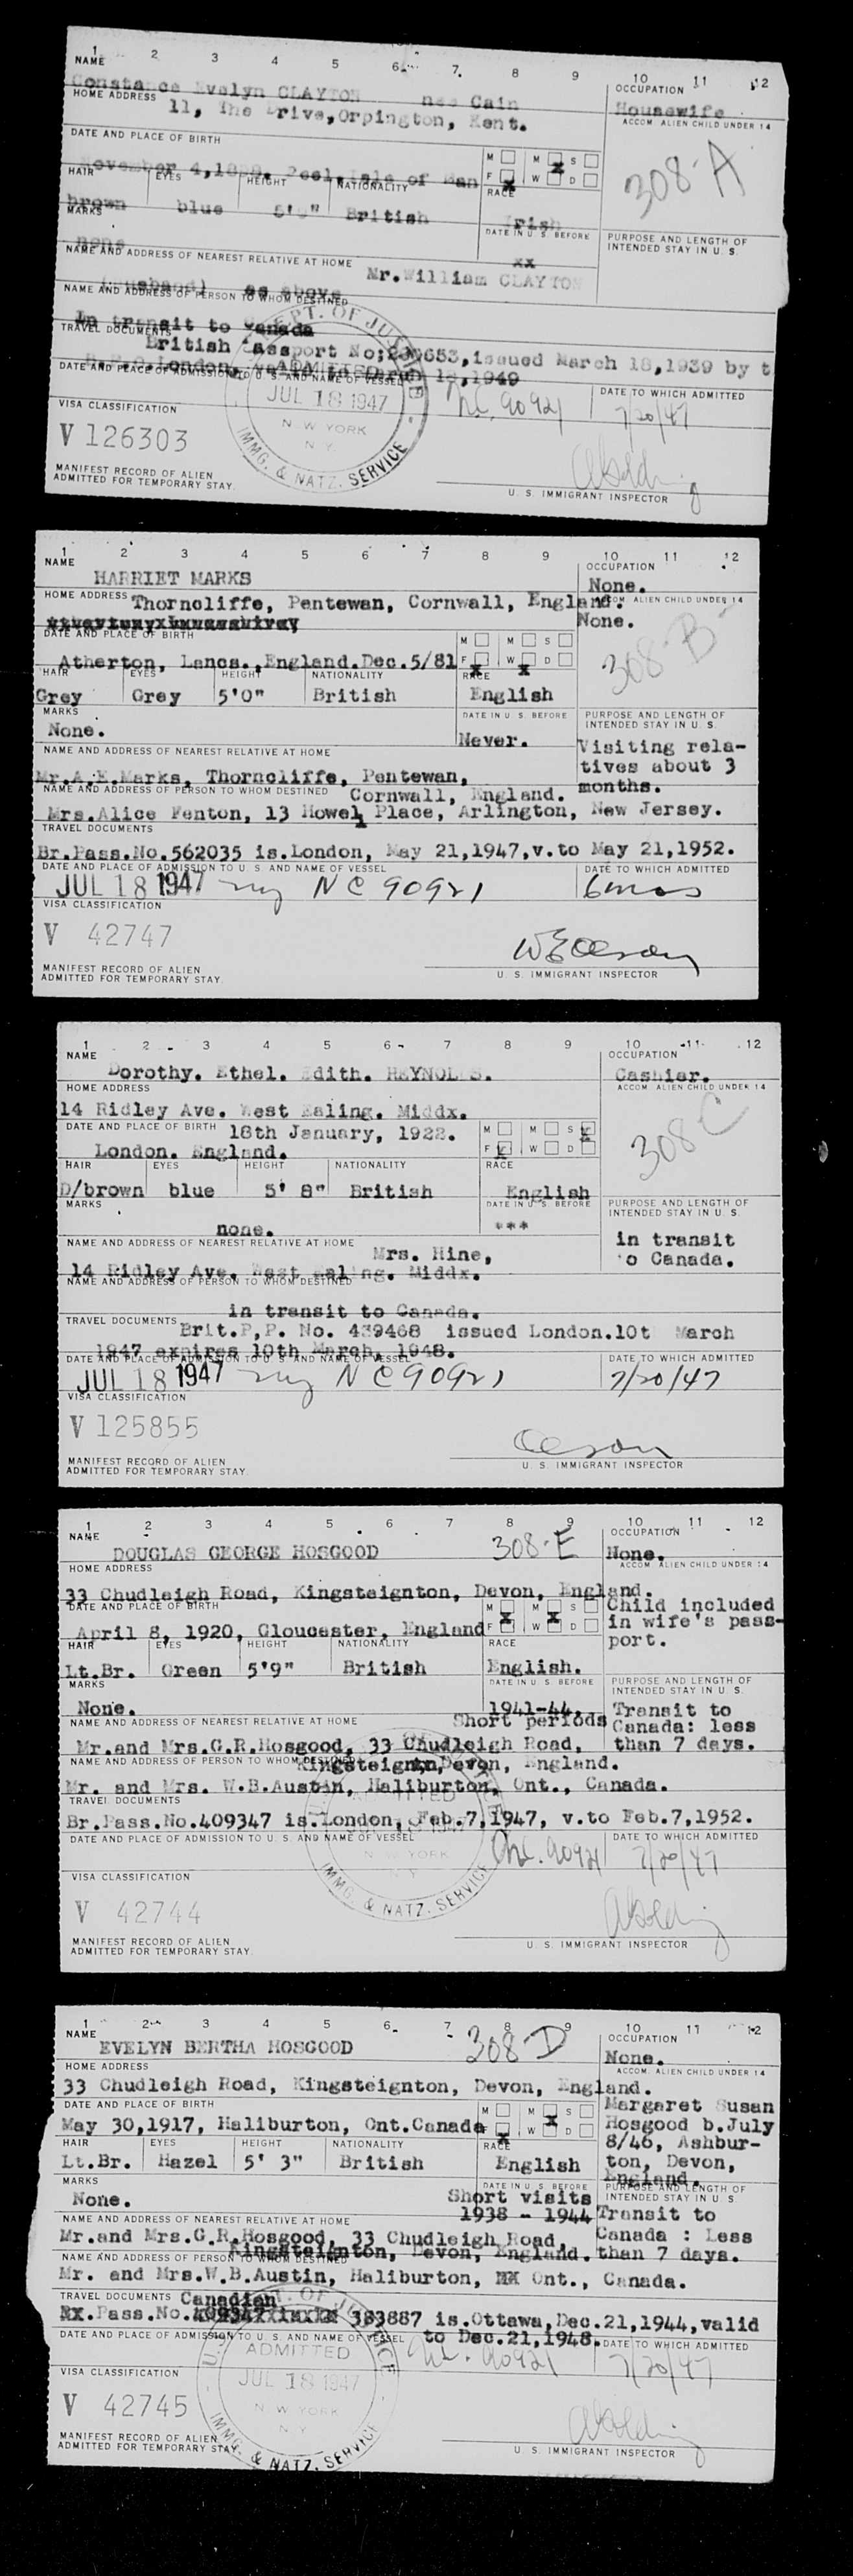 1 2 3 4 5 6 7 8 9 10 11 12
NAME OCCUPATION
Constance Evelyn CLAYTON nee Cain Housewife
HOME ADDRESS ACCOM. ALIEN CHILD UNDER 14
11, The Drive, Orpington, Kent.
308-A
DATE AND PLACE OF BIRTH M M S
November 4, Peel, Isle of Man F X W X D
HAIR EYES HEIGHT NATIONALITY RACE
brown blue British Irish
MARKS DATE IN U. S. BEFORE PURPOSE AND LENGTH OF INTENDED STAY IN U. S.
none xx
NAME AND ADDRESS OF NEAREST RELATIVE AT HOME Mr. William CLAYTON
(husband) as above
NAME AND ADDRESS OF PERSON TO WHOM DESTINED
In transit to Canada
TRAVEL DOCUMENTS
British Passport No; issued March 18, 1939 by t
London,
DATE AND PLACE OF ADMISSION TO U. S. AND NAME OF VESSEL DATE TO WHICH ADMITTED
DEPT. OF JUSTICE ADMITTED JUL 18 1947 NEW YORK N. Y. IMMG. & NATZ. SERVICE
NC 90921 7/20/47
VISA CLASSIFICATION
V 126303
MANIFEST RECORD OF ALIEN
ADMITTED FOR TEMPORARY STAY. U. S. IMMIGRANT INSPECTOR
1 2 3 4 5 6 7 8 9 10 11 12
NAME OCCUPATION
HARRIET MARKS None.
HOME ADDRESS Thorncliffe, Pentewan, Cornwall, England. ACCOM. ALIEN CHILD UNDER 14
None.
308-B
DATE AND PLACE OF BIRTH M M S
Atherton, Lancs., England. Dec. 5/81 F X W X D
HAIR EYES HEIGHT NATIONALITY RACE
Grey Grey 5'0" British English
MARKS DATE IN U. S. BEFORE PURPOSE AND LENGTH OF INTENDED STAY IN U. S.
None. Never. Visiting rela-
NAME AND ADDRESS OF NEAREST RELATIVE AT HOME tives about 3
Mr.A.E.Marks, Thorncliffe, Pentewan, months.
NAME AND ADDRESS OF PERSON TO WHOM DESTINED Cornwall, England.
Mrs.Alice Fenton, 13 Howel Place, Arlington, New Jersey.
TRAVEL DOCUMENTS
Br.Pass.No.562035 is.London, May 21,1947,v.to May 21,1952.
DATE AND PLACE OF ADMISSION TO U. S. AND NAME OF VESSEL DATE TO WHICH ADMITTED
JUL 18 1947 ny NC 90921 6mos
VISA CLASSIFICATION
V 42747
W E Olson
MANIFEST RECORD OF ALIEN
ADMITTED FOR TEMPORARY STAY. U. S. IMMIGRANT INSPECTOR
1 2 3 4 5 6 7 8 9 10 11 12
NAME OCCUPATION
Dorothy. Ethel. Edith. REYNOLDS. Cashier.
HOME ADDRESS ACCOM. ALIEN CHILD UNDER 14
14 Ridley Ave. West Ealing. Middx.
308C
DATE AND PLACE OF BIRTH 18th January, 1922. M M S X
London. England. F X W D
HAIR EYES HEIGHT NATIONALITY RACE
D/brown blue 5' 8" British English
MARKS DATE IN U. S. BEFORE PURPOSE AND LENGTH OF INTENDED STAY IN U. S.
none. *** in transit
NAME AND ADDRESS OF NEAREST RELATIVE AT HOME Mrs. Hine, to Canada.
14 Ridley Ave. West Ealing. Middx.
NAME AND ADDRESS OF PERSON TO WHOM DESTINED
in transit to Canada.
TRAVEL DOCUMENTS
Brit.P,P. No. 439468 issued London.10t March
1947 expires 10th March, 1948.
DATE AND PLACE OF ADMISSION TO U. S. AND NAME OF VESSEL DATE TO WHICH ADMITTED
JUL 18 1947 ny NC90921 7/20/47
VISA CLASSIFICATION
V 125855
Olson
MANIFEST RECORD OF ALIEN
ADMITTED FOR TEMPORARY STAY. U. S. IMMIGRANT INSPECTOR
1 2 3 4 5 6 7 8 9 10 11 12
NAME OCCUPATION
DOUGLAS GEORGE HOSGOOD 308-E None.
HOME ADDRESS ACCOM. ALIEN CHILD UNDER 14
33 Chudleigh Road, Kingsteignton, Devon, England.
DATE AND PLACE OF BIRTH M X M X S Child included
April 8, 1920, Gloucester, England F W D in wife's pass-
port.
HAIR EYES HEIGHT NATIONALITY RACE
Lt.Br. Green 5'9" British English.
MARKS DATE IN U. S. BEFORE PURPOSE AND LENGTH OF INTENDED STAY IN U. S.
None. 1941-44. Transit to
NAME AND ADDRESS OF NEAREST RELATIVE AT HOME Short periods Canada: less
Mr.and Mrs.G.R.Hosgood, 33 Chudleigh Road, than 7 days.
NAME AND ADDRESS OF PERSON TO WHOM DESTINED Kingsteignton, Devon, England.
Mr. and Mrs. W.B.Austin, Haliburton, Ont., Canada.
TRAVEL DOCUMENTS
Br.Pass.No.409347 is.London, Feb.7,1947, v.to Feb.7,1952.
DATE AND PLACE OF ADMISSION TO U. S. AND NAME OF VESSEL DATE TO WHICH ADMITTED
ADMITTED NEW YORK N. Y. IMMG. & NATZ. SERVICE
NC. 90921 7/20/47
VISA CLASSIFICATION
V 42744
MANIFEST RECORD OF ALIEN
ADMITTED FOR TEMPORARY STAY. U. S. IMMIGRANT INSPECTOR
1 2 3 4 5 6 7 8 9 10 11 12
NAME OCCUPATION
EVELYN BERTHA HOSGOOD 308-D None.
HOME ADDRESS ACCOM. ALIEN CHILD UNDER 14
33 Chudleigh Road, Kingsteignton, Devon, England.
DATE AND PLACE OF BIRTH M M X S Margaret Susan
May 30,1917, Haliburton, Ont.Canada F X W D Hosgood b.July
HAIR EYES HEIGHT NATIONALITY RACE 8/46, Ashbur-
Lt.Br. Hazel 5' 3" British English ton, Devon,
England.
MARKS DATE IN U. S. BEFORE PURPOSE AND LENGTH OF INTENDED STAY IN U. S.
None. Short visits
NAME AND ADDRESS OF NEAREST RELATIVE AT HOME 1938 - 1944 Transit to
Mr.and Mrs.G.R.Hosgood, 33 Chudleigh Road, Canada : Less
NAME AND ADDRESS OF PERSON TO WHOM DESTINED Kingsteignton, Devon, England. than 7 days.
Mr. and Mrs.W.B.Austin, Haliburton, Ont., Canada.
TRAVEL DOCUMENTS Canadian
Pass.No. 383887 is.Ottawa,Dec.21,1944,valid
to Dec.21,1948.
DATE AND PLACE OF ADMISSION TO U. S. AND NAME OF VESSEL DATE TO WHICH ADMITTED
DEPT. OF JUSTICE ADMITTED JUL 18 1947 NEW YORK N. Y. IMMG. & NATZ. SERVICE
NC. 90921 7/20/47
VISA CLASSIFICATION
V 42745
MANIFEST RECORD OF ALIEN
ADMITTED FOR TEMPORARY STAY. U. S. IMMIGRANT INSPECTOR